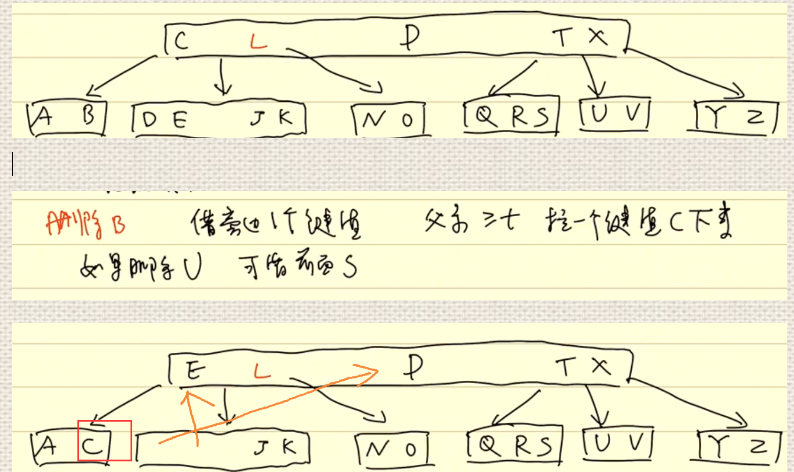 C L P T X
A B D E J K N O Q R S U V Y Z
删除 B 借旁边1个键值 父亲 ≥t 拉一个键值C下来
如果删除 U 可借前面 S
E L P T X
A C J K N O Q R S U V Y Z